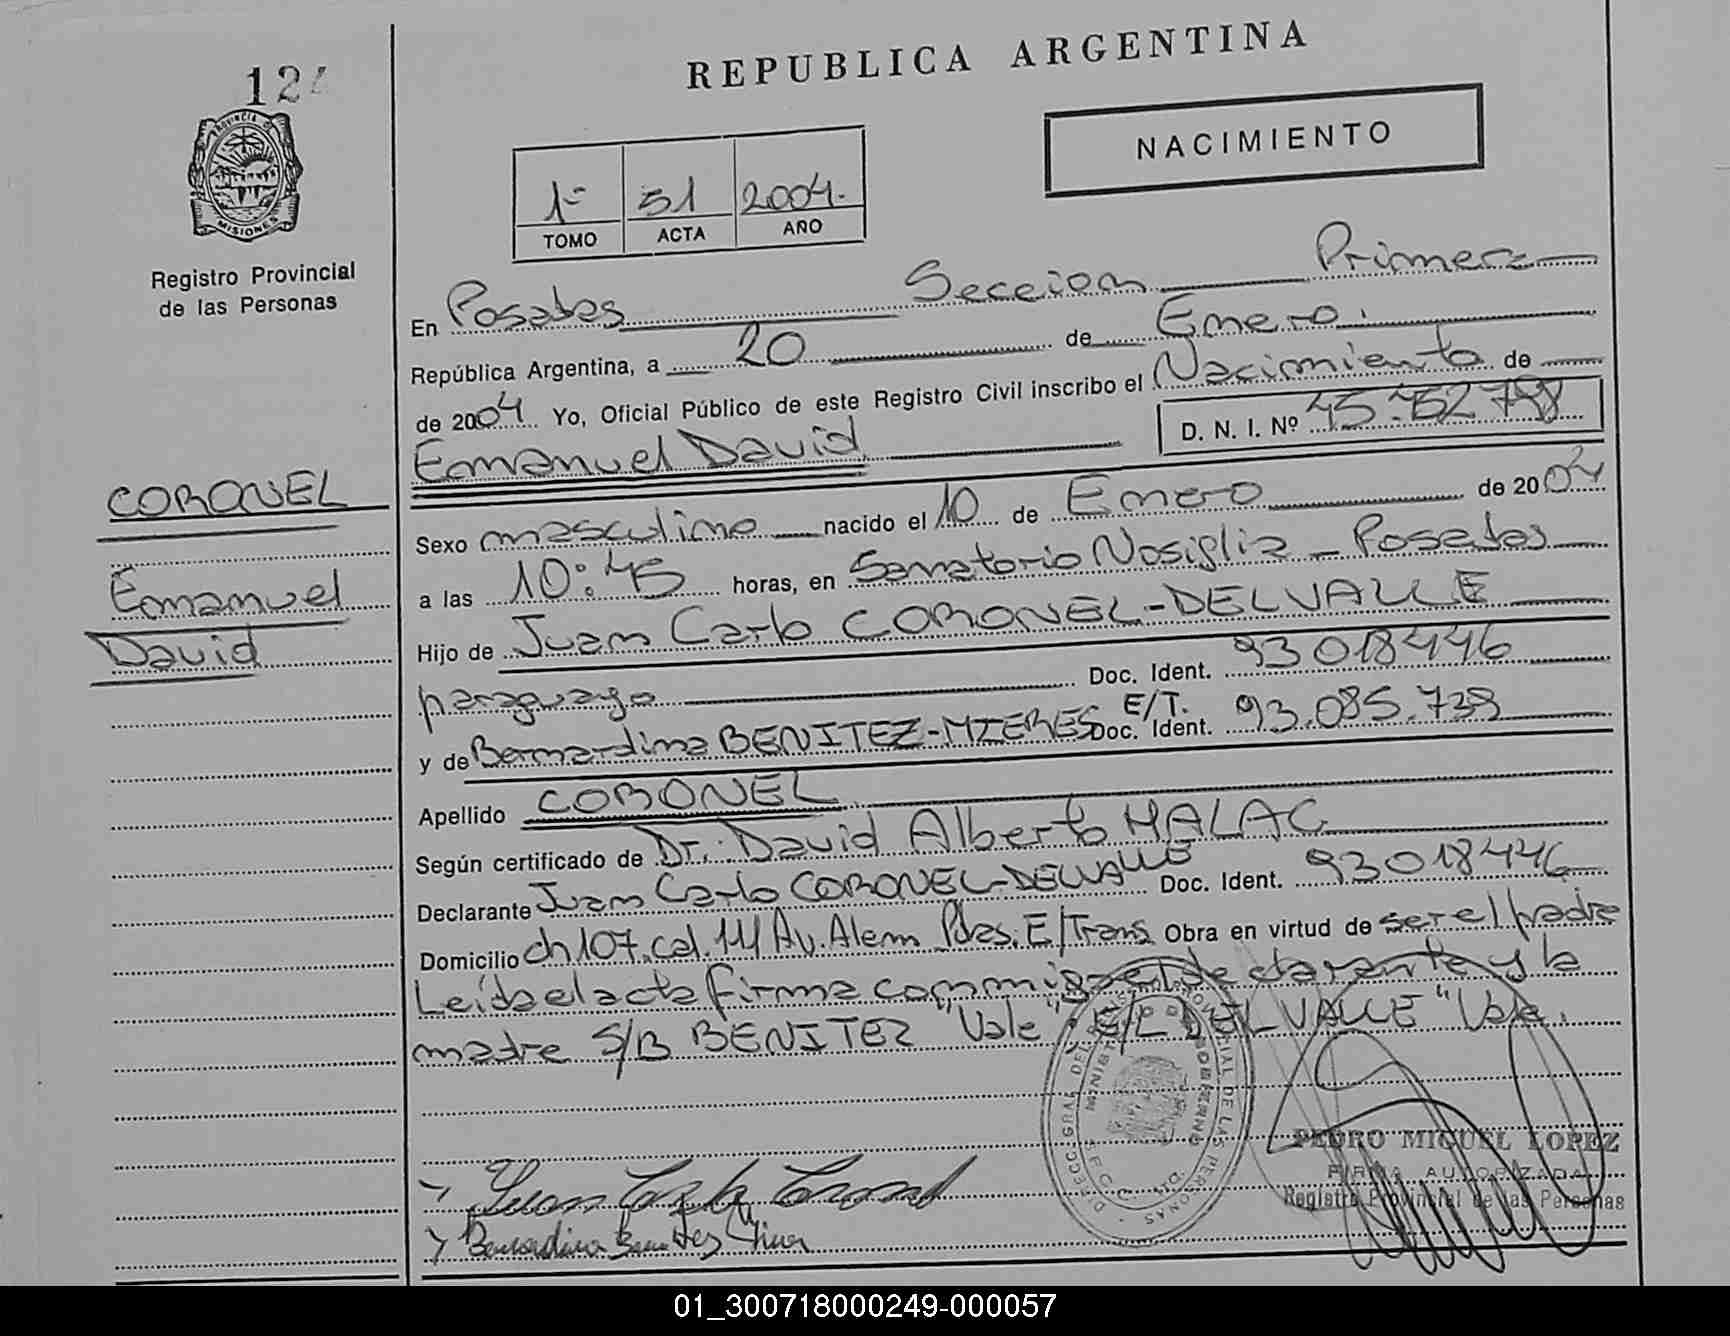 REPUBLICA ARGENTINA
12
PROVINCIA DE
MISIONES
Registro Provincial
de las Personas
NACIMIENTO
1º 51 2004.
TOMO ACTA AÑO
En Posadas Seccion Primera
República Argentina, a 20 de Enero.
de 2004 Yo, Oficial Público de este Registro Civil inscribo el Nacimiento de
Emanuel David D. N. I. Nº 45.752.798
CORONEL
Emanuel
David
Sexo masculino nacido el 10 de Enero de 2004
a las 10:45 horas, en Sanatorio Nosiglia - Posadas
Hijo de Juan Carlo CORONEL-DELVALLE
paraguayo Doc. Ident. 93018446
y de Bernardina BENITEZ-MIERES E/T. Doc. Ident. 93.085.738
Apellido CORONEL
Según certificado de Dr. David Alberto MALAC
Declarante Juan Carlo CORONEL-DELVALLE Doc. Ident. 93018446
Domicilio ch107.cal.14 Av. Alem Pdas. E/Trans Obra en virtud de ser el padre
Leida el acta firma conmigo el declarante y la
madre S/B BENITEZ "Vale" E/L DELVALLE "Vale.
Juan Carlo Coronel
Bernardina Benitez
PEDRO MIGUEL LOPEZ
FIRMA AUTORIZADA
Registro Provincial de las Personas
01_300718000249-000057